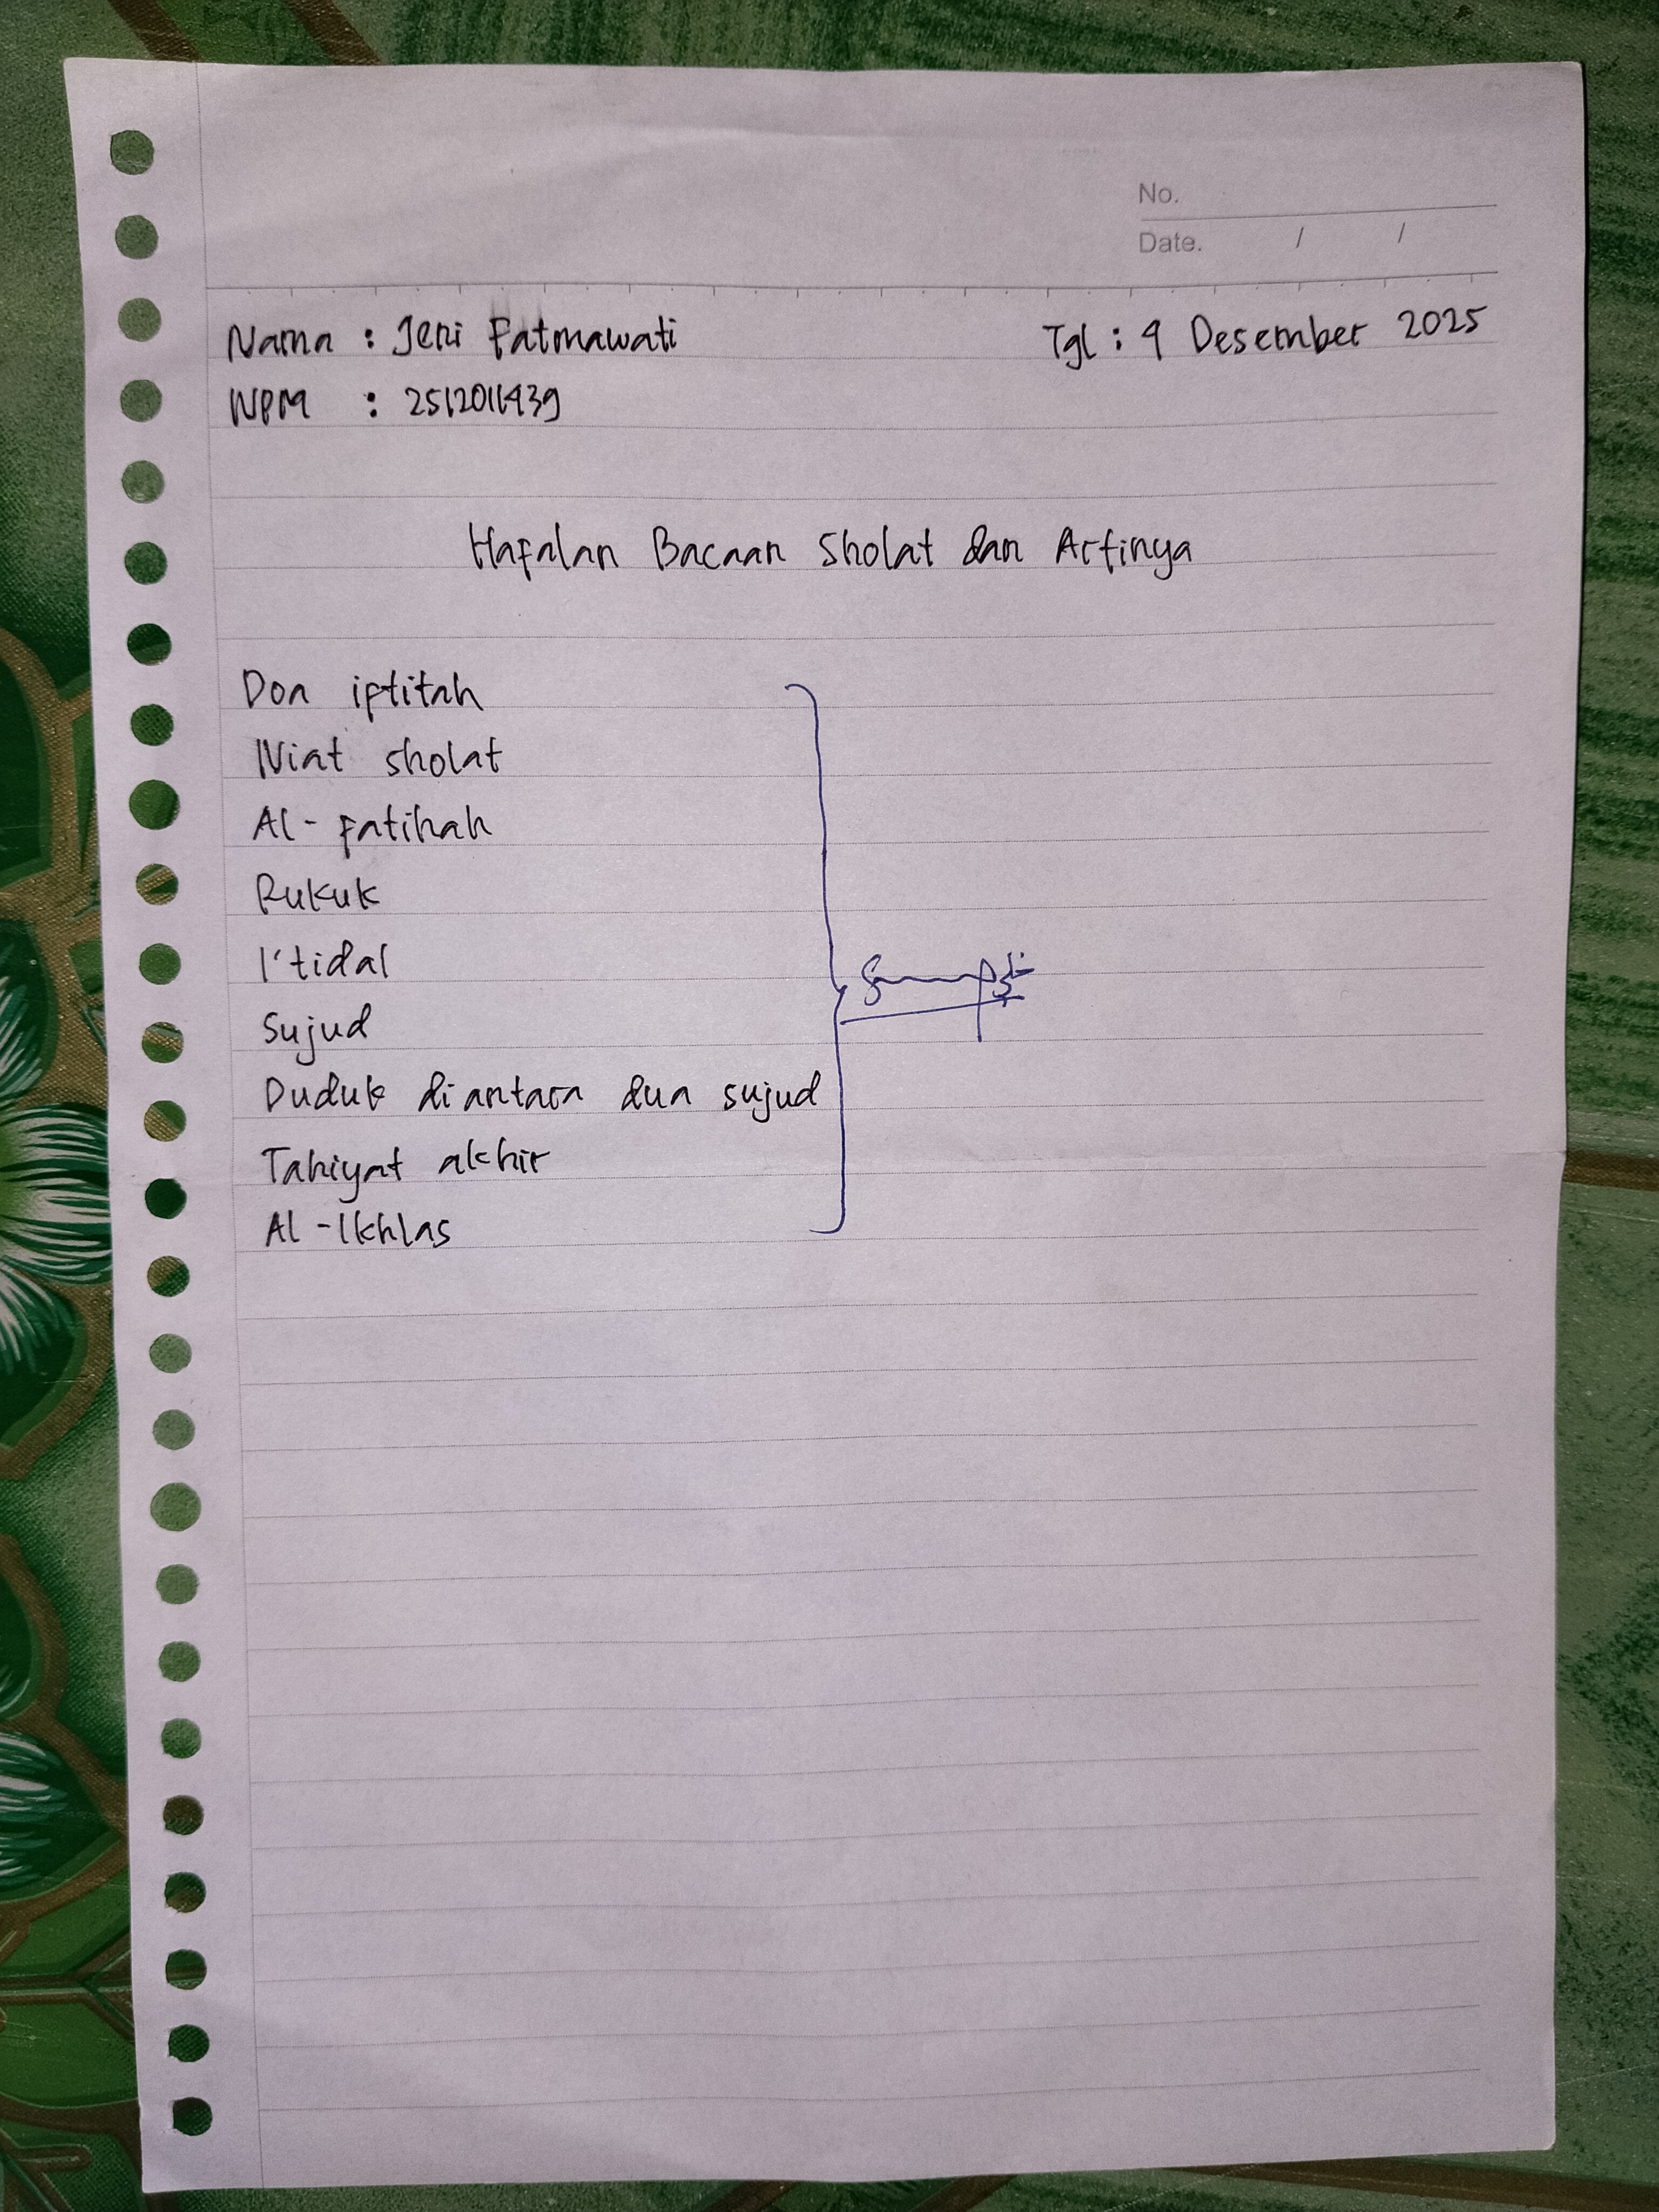 No.
Date. / /
Nama : Jeni Fatmawati Tgl : 9 Desember 2025
NPM : 2512011439
Hafalan Bacaan Sholat dan Artinya
Doa iftitah
Niat sholat
Al-fatihah
Rukuk
I'tidal
Sujud
Duduk diantara dua sujud
Tahiyat akhir
Al-Ikhlas